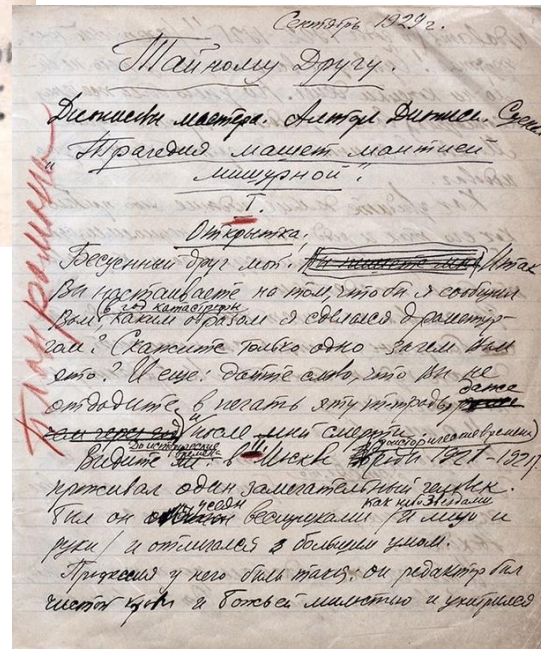 Сентябрь 1929 г.
Тайному Другу.
Дионисовы мастера. Алтарь Диониса. Сцена.
"Трагедия машет мантией
мишурной".
I.
Открытка.
Бесценный друг мой! Итак
Вы настаиваете на том, чтобы я сообщил
Вам в год катастрофы каким образом я сделался драматур-
гом? Скажите только одно зачем Вам
это? И еще: дайте слово, что Вы не
отдадите в печать эту тетрадь даже
после моей смерти.
Видите ли: в Москве доисторические времена (в доисторические времена) 1921-1925
проживал один замечательный человек.
Был он усеян веснушками как небо звездами (и лицо и
руки) и отличался большим умом.
Профессия у него была такая: он редактор был
чистой крови и Божьей милостью и ухитрился